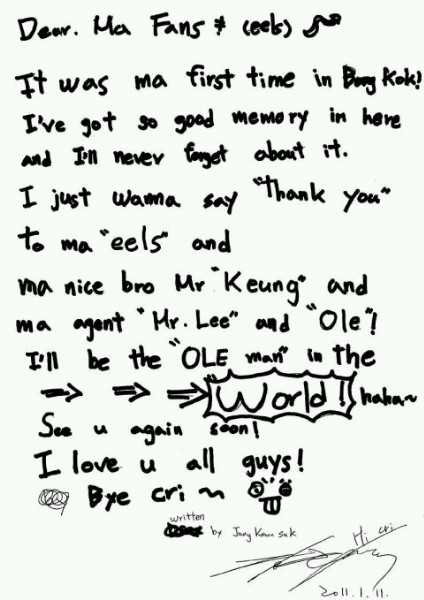 Dear. Ma Fans * (eels)
It was ma first time in Bang Kok!
I've got so good memory in here
and I'll never forget about it.
I just wanna say "Thank you"
To ma "eels" and
ma nice bro Mr "Keung" and
ma agent "Mr. Lee" and "Ole"!
I'll be the "OLE man" in the
⇒ ⇒ ⇒ World! haha~
See u again soon!
I love u all guys!
Bye cri ~
written
by Jang Keun suk
Hi cri
2011.1.11.